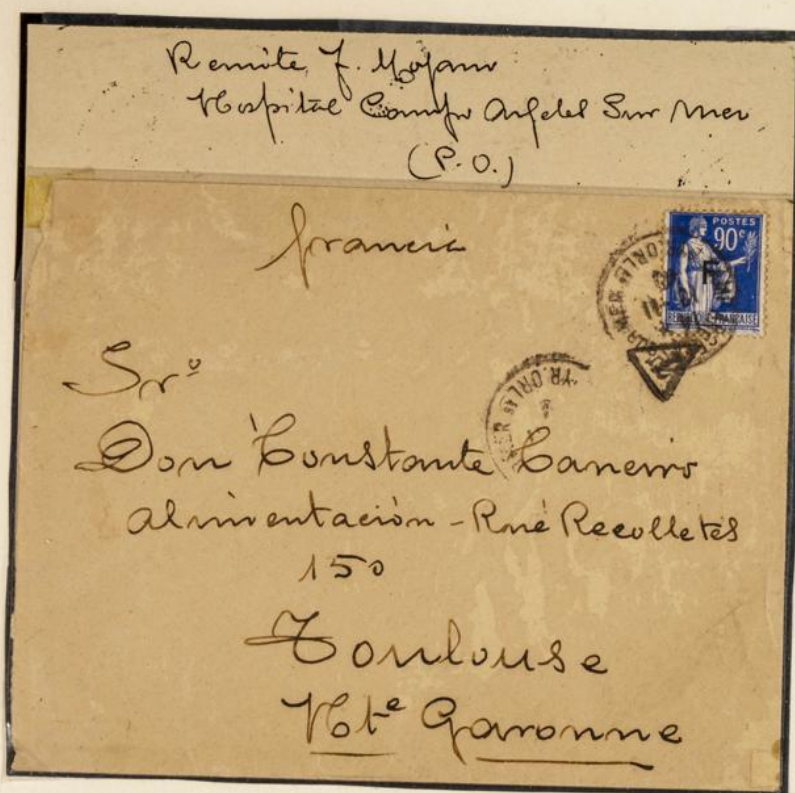 Remite, J. Moyano
Hospital Campo Argeles Sur Mer
(P.O.)
francia
POSTES
90c
F
REPUBLIQUE FRANÇAISE
Srº
Don Constante Caneiro
alimentación - Rué Recolletes
150
Toulouse
Hte Garonne